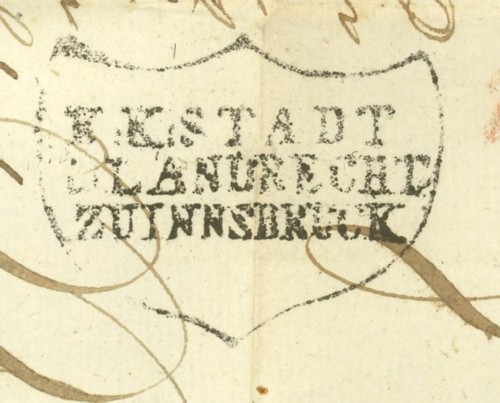 K.K.STADT
U LANDRECHT
ZUINNSBRUCK